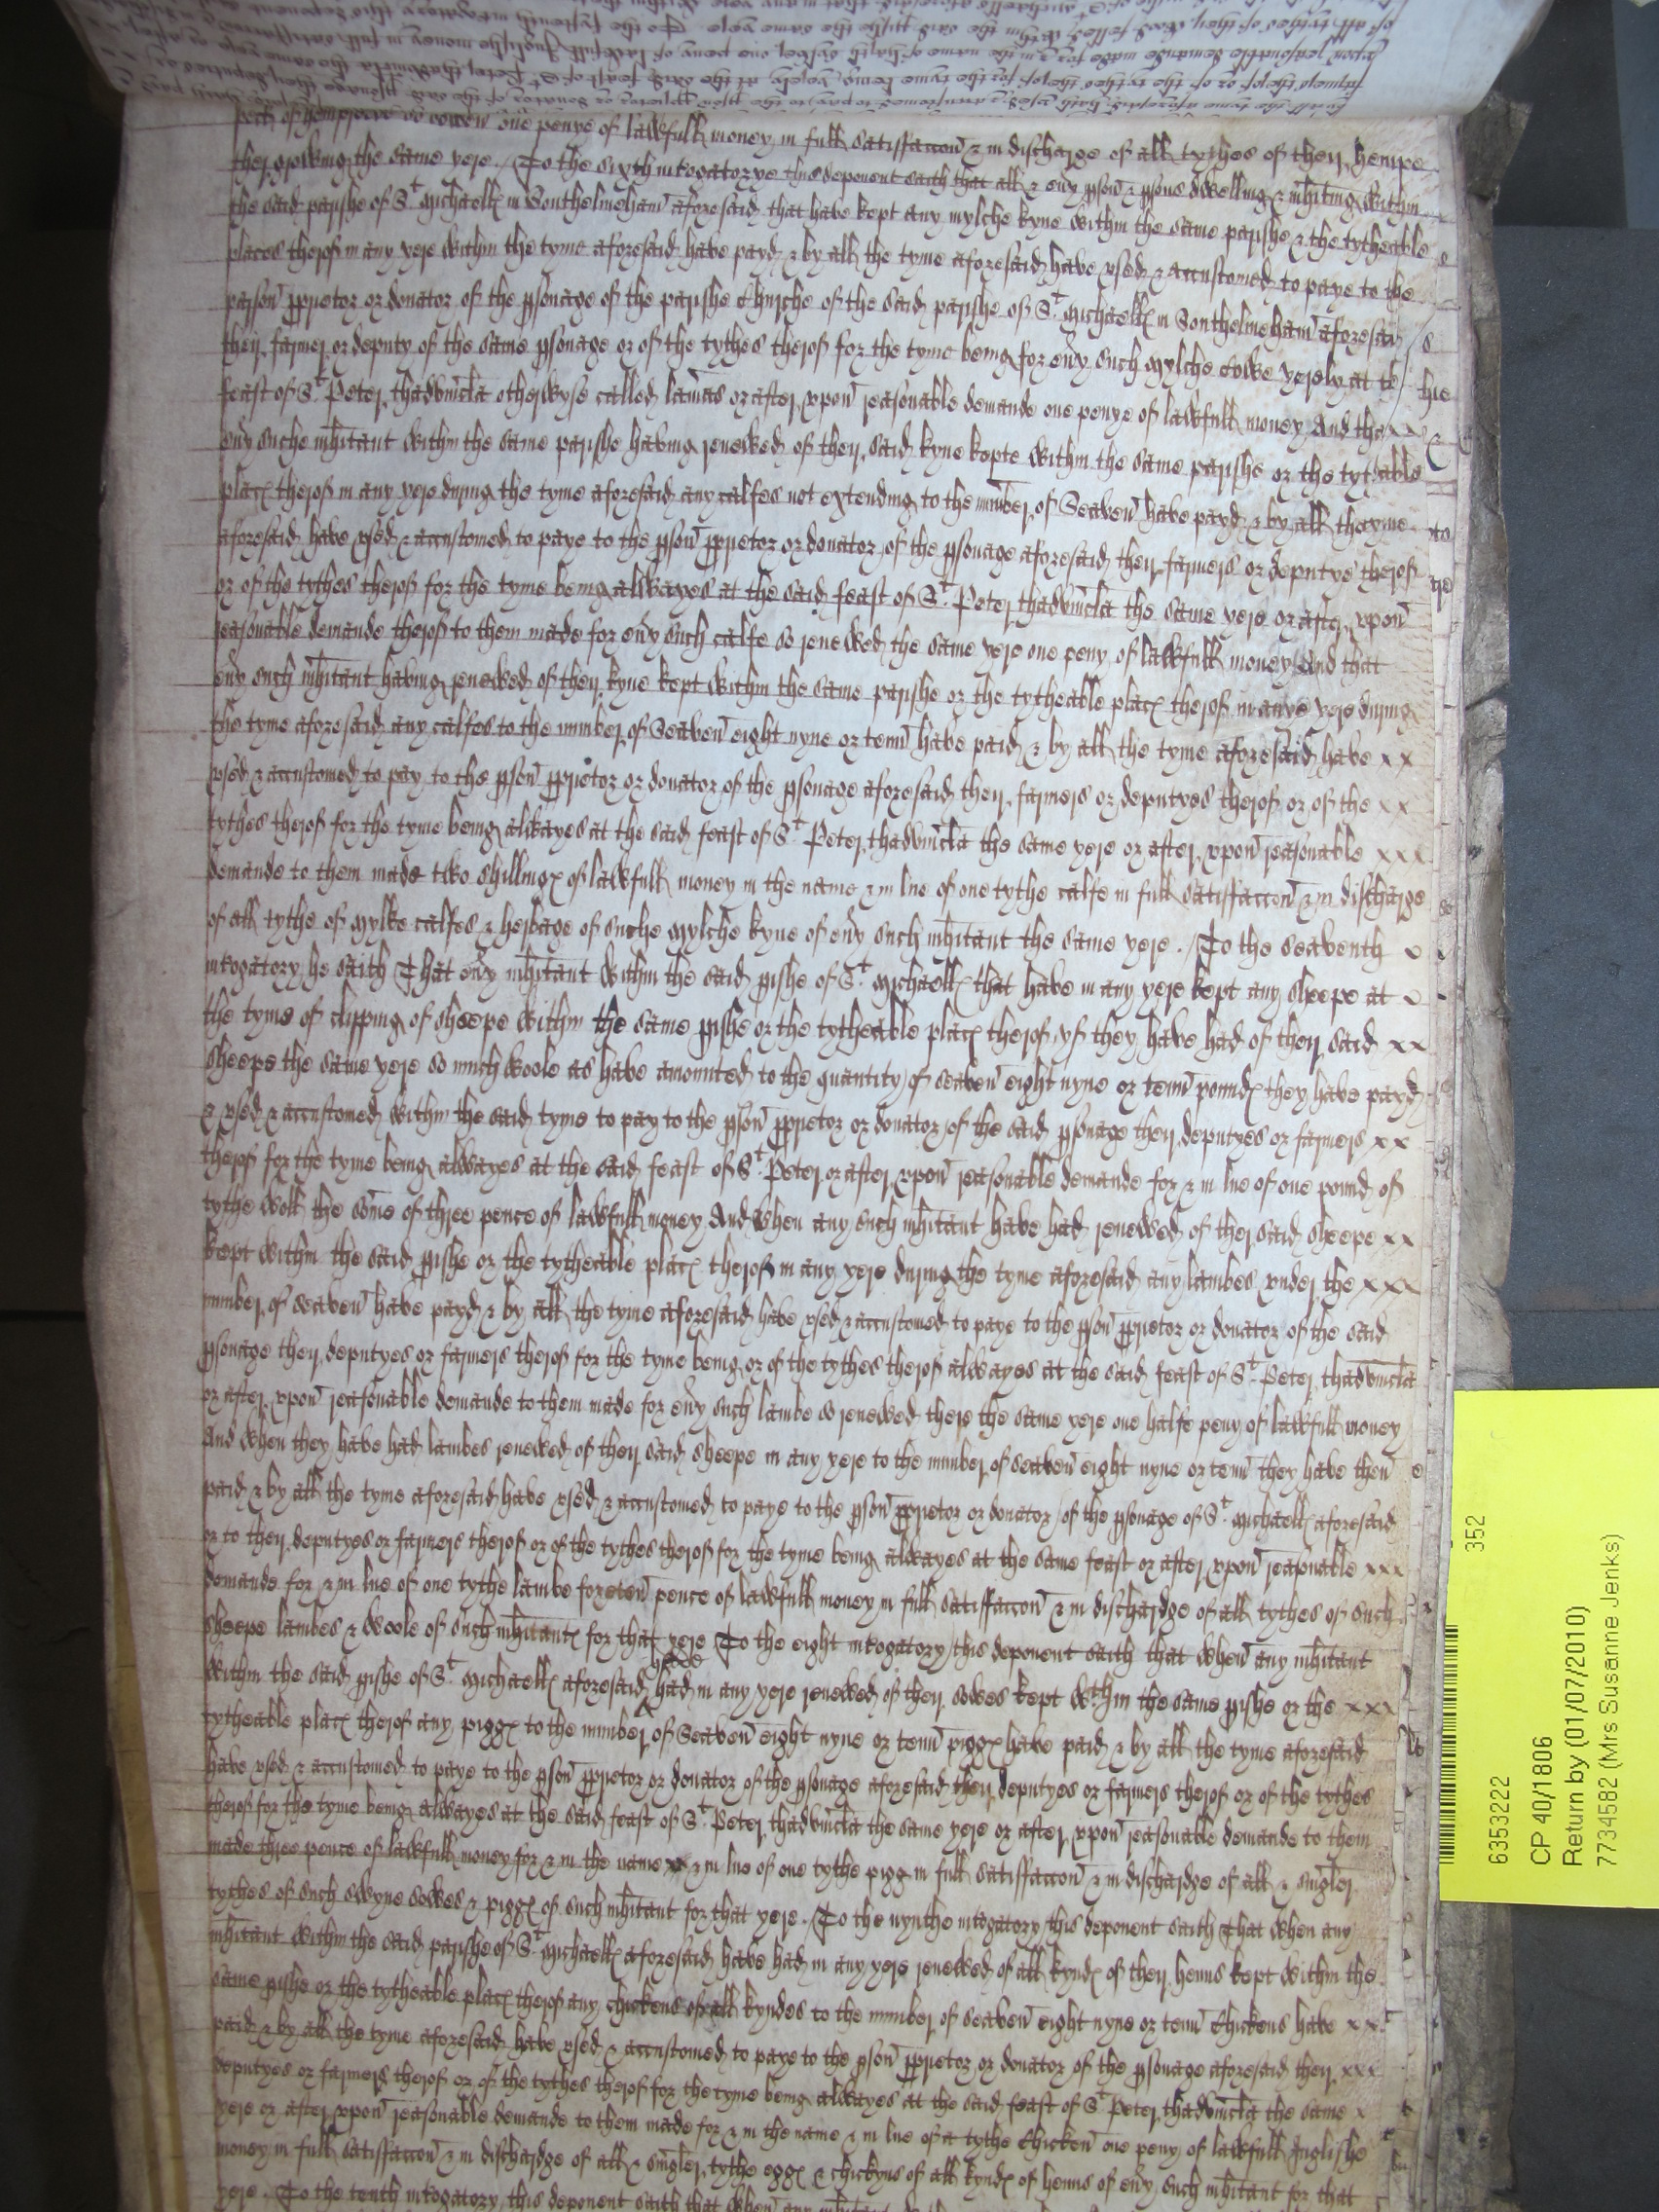 peck of hempseede so sowen one penye of lawfull money in full satisfaccon & in discharge of all tythes of their hempe
ther growing the same yere / To the sixth introgatorye this deponent saith that all & eny pson & psons dwelling & inhiting within
the said parishe of St Michaell in Southelmeham aforesaid that have kept any mylche kyne within the same parishe & the tytheable
places therof in any yere within the tyme aforesaid have payd & by all the tyme aforesaid have vsed & accustomed to paye to the
parson pprietor or donator of the psonage of the parishe Churche of the said parishe of St Michaell in Southelmeham aforesaid
their farmer or deputy of the same psonage or of the tythes therof for the tyme being for eny such mylche cowe yerely at the
feast of St Peter thadvincla otherwyse called lamas or after vpon reasonable demande one penye of lawfull money And the xx
eny suche inhitant within the same parishe having renewed of their said kyne kepte within the same parishe or the tytheable
plac therof in any yere during the tyme aforesaid any calfes not extending to the number of Seaven have payd & by all the tyme
aforesaid have vsed & accustomed to paye to the pson pprietor or donator of the psonage aforesaid their farmers or deputyes therof
or of the tythes therof for the tyme being allwayes at the said feast of St Peter thadvincla the same yere or after vpon
reasonable demande therof to them made for eny such calfe so renewed the same yere one peny of lawfull money And that
eny such inhitant having renewed of their kyne kept within the same parishe or the tytheable plac therof in anye yere during
the tyme aforesaid any calfes to the number of Seaven eight nyne or tenn have paid & by all the tyme aforesaid have xx
vsed & accustomed to pay to the pson pprietor or donator of the psonage aforesaid their farmers or deputyes therof or of the xx
tythes therof for the tyme being alwayes at the said feast of St Peter thadvincla the same yere or after vpon reasonable xxx
demande to them made two shilling of lawfull money in the name & in lue of one tythe calfe in full satisfaccon & in discharge
of all tythe of mylke calfes & herbage of suche mylche kyne of eny such inhitant the same yere . / To the seaventh
introgatory he saith That eny inhitant within the said pishe of St Michaell that have in any yere kept any sheepe at
the tyme of clipping of sheepe within the same pishe or the tytheable plac therof yf they have had of their said xx
sheepe the same yere so much woole as have amounted to the quantity of seaven eight nyne or tenn pound they have payd
& vsed & accustomed within the said tyme to pay to the pson pprietor or donator of the said psonage their deputyes or farmers xx
therof for the tyme being allwayes at the said feast of St Peter or after vpon reasonable demande for & in lue of one pound of
tythe woll the some of three pence of lawfull money And when any such inhitant have had renewed of their said sheepe xx
kept within the said pishe or the tytheable plac therof in any yere during the tyme aforesaid any lambes vnder the xxx
number of seaven have payd & by all the tyme aforesaid have vsed & accustomed to paye to the pson pprietor or donator of the said
psonage their deputyes or farmers therof for the tyme being or of the tythes therof allwayes at the said feast of St Peter thadvincla
or after vpon reasonable demande to them made for eny such lambe so renewed there the same yere one halfe peny of lawfull money
And when they have had lambes renewed of their said sheepe in any yere to the number of seaven eight nyne or tenn they have then
paid & by all the tyme aforesaid have vsed & accustomed to paye to the pson pprietor or donator of the psonage of St Michaell aforesaid
or to their deputyes or farmers therof or of the tythes therof for the tyme being alwayes at the same feast or after vpon reasonable xxx
demande for & in lue of one tythe lambe foreten pence of lawfull money in full satisfaccon & in dischardge of all tythes of such
sheepe lambes & woole of such inhitant for that yere To the eight introgatory this deponent saith that when any inhitant
within the said pishe of St Michaell aforesaid have had in any yere renewed of their sowes kept within the same pishe or the xxx
tytheable plac therof any pigg to the number of Seaven eight nyne or tenn pigg have paid & by all the tyme aforesaid
have vsed & accustomed to paye to the pson pprietor or donator of the psonage aforesaid their deputyes or farmers therof or of the tythes
therof for the tyme being allwayes at the said feast of St Peter thadvincla the same yere or after vpon reasonable demande to them
made three pence of lawfull money for & in the name & in lue of one tythe pigg in full satisfaccon & in dischardge of all & singler
tythes of such swyne sowes & pigg of such inhitant for that yere . / To the nynthe introgatory this deponent saith that when any
inhitant within the said parishe of St Michaell aforesaid have had in any yere renewed of all kynd of their henns kept within the
same pishe or the tytheable plac therof any chickens of all kyndes to the number of seaven eight nyne or tenn Chickens have xx
paid & by all the tyme aforesaid have vsed & accustomed to paye to the pson pprietor or donator of the psonage aforesaid their xxx
deputyes or farmers therof or of the tythes therof for the tyme being allwayes at the said feast of St Peter thadvincla the same x
yere or after vpon reasonable demande to them made for & in the name & in lue of a tythe Chicken one peny of lawfull Inglishe
money in full satisfaccon & in dischardge of all & singler tythe egg & chickyns of all kynd of henns of eny such inhitant for that
yere . To the tenth introgatory this deponent saith that when any inhitant
352
6353222
CP 40/1806
Return by (01/07/2010)
7734582 (Mrs Susanne Jenks)